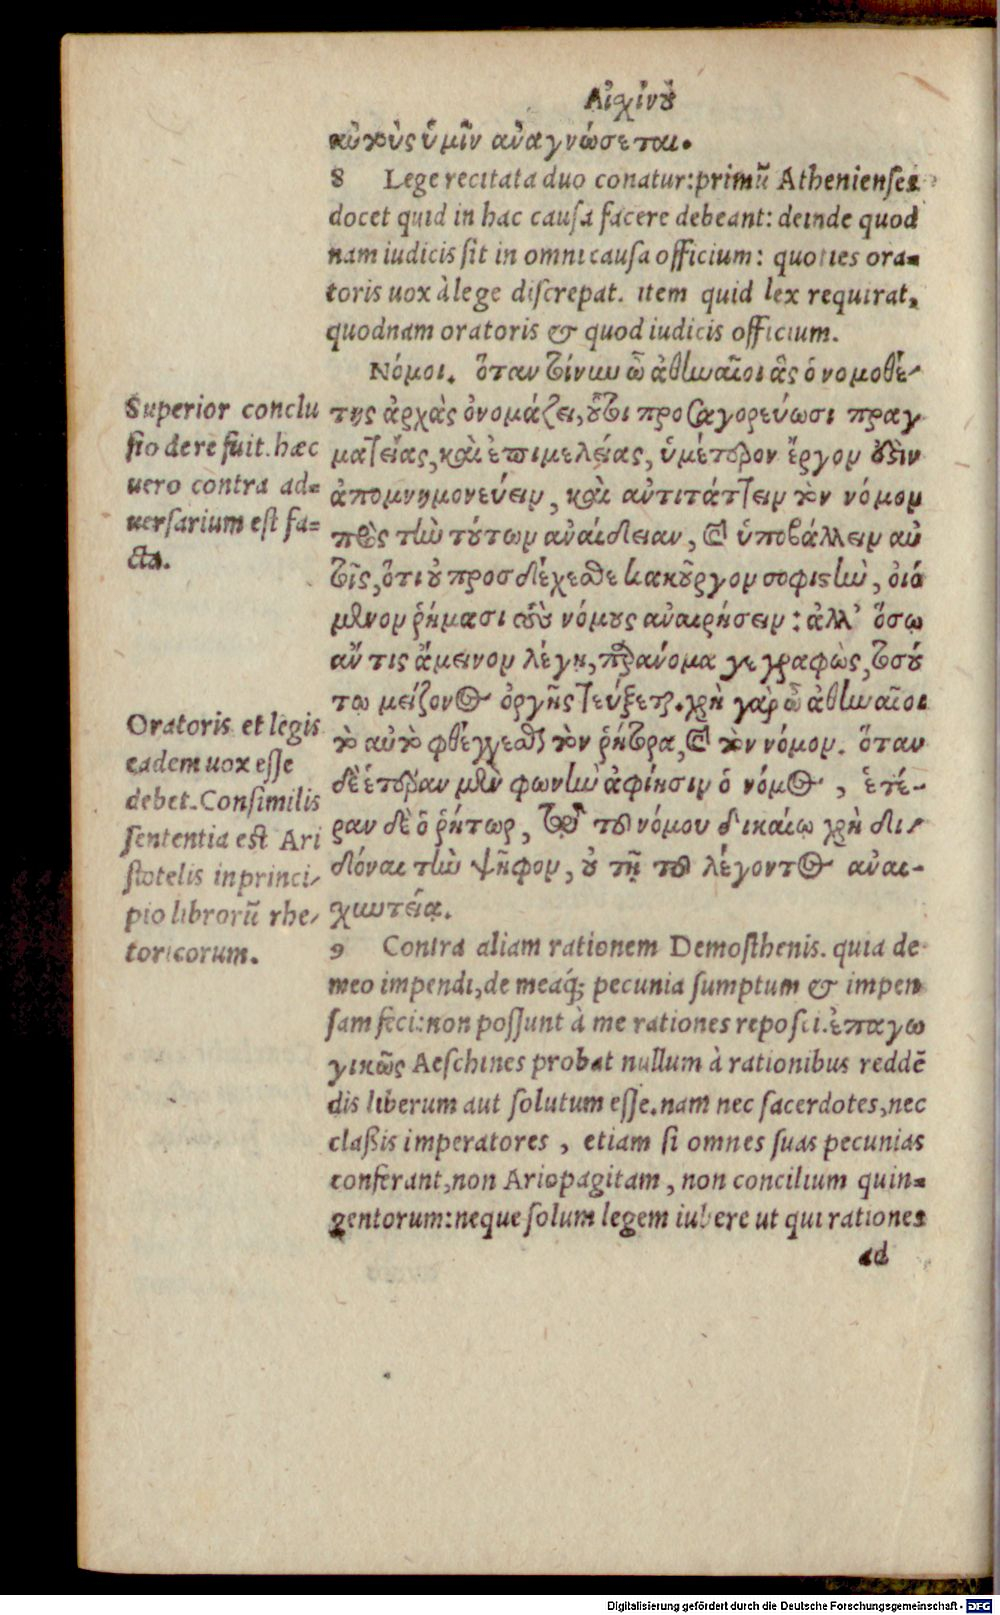 Αἰσχίνου
αὐτοὺς ὑμῖν ἀναγνώσεται.
8 Lege recitata duo conatur: primũ Athenienses
docet quid in hac causa facere debeant: deinde quod
nam iudicis sit in omni causa officium: quoties ora=
toris uox à lege discrepat. item quid lex requirat,
quodnam oratoris & quod iudicis officium.
Νόμοι. ὅταν τοίνυν ὦ ἀθηναῖοι ἃς ὁ νομοθέ-
της ἀρχὰς ὀνομάζει, οὗτοι προσαγορεύωσι πραγ
ματείας, καὶ ἐπιμελείας, ὑμέτερον ἔργον ἐστὶν
ἀπομνημονεύειν, καὶ ἀντιτάττειν τὸν νόμον
πρὸς τὴν τούτων ἀναίδειαν, καὶ ὑποβάλλειν αὐ
τοῖς, ὅτι οὐ προσδέχεσθε κακοῦργον σοφιστὴν, οἰό
μενον ῥήμασι τοὺς νόμους ἀναιρήσειν: ἀλλ' ὅσῳ
ἄν τις ἄμεινον λέγῃ, παράνομα γεγραφὼς, τοσού
τῳ μείζονος ὀργῆς τεύξεται. χρὴ γὰρ ὦ ἀθηναῖοι
τὸ αὐτὸ φθέγγεσθαι τὸν ῥήτορα, καὶ τὸν νόμον. ὅταν
δὲ ἑτέραν μὲν φωνὴν ἀφίησιν ὁ νόμος, ἑτέ-
ραν δὲ ὁ ῥήτωρ, τῷ τοῦ νόμου δικαίῳ χρὴ δι-
δόναι τὴν ψῆφον, οὐ τῇ τοῦ λέγοντος ἀναι-
σχυντείᾳ.
9 Contra aliam rationem Demosthenis. quia de
meo impendi, de meaq; pecunia sumptum & impen
sam feci: non possunt à me rationes reposci. ἐπαγω
γικῶς Aeschines probat nullum à rationibus reddẽ
dis liberum aut solutum esse. nam nec sacerdotes, nec
claßis imperatores, etiam si omnes suas pecunias
conferant, non Ariopagitam, non concilium quin=
gentorum: neque solum legem iubere ut qui rationes
ad
Superior conclu
sio de re fuit. hæc
uero contra ad=
uersarium est fa=
cta.
Oratoris et legis
eadem uox esse
debet. Consimilis
sententia est Ari
stotelis in princi-
pio librorũ rhe-
toricorum.
Digitalisierung gefördert durch die Deutsche Forschungsgemeinschaft - DFG